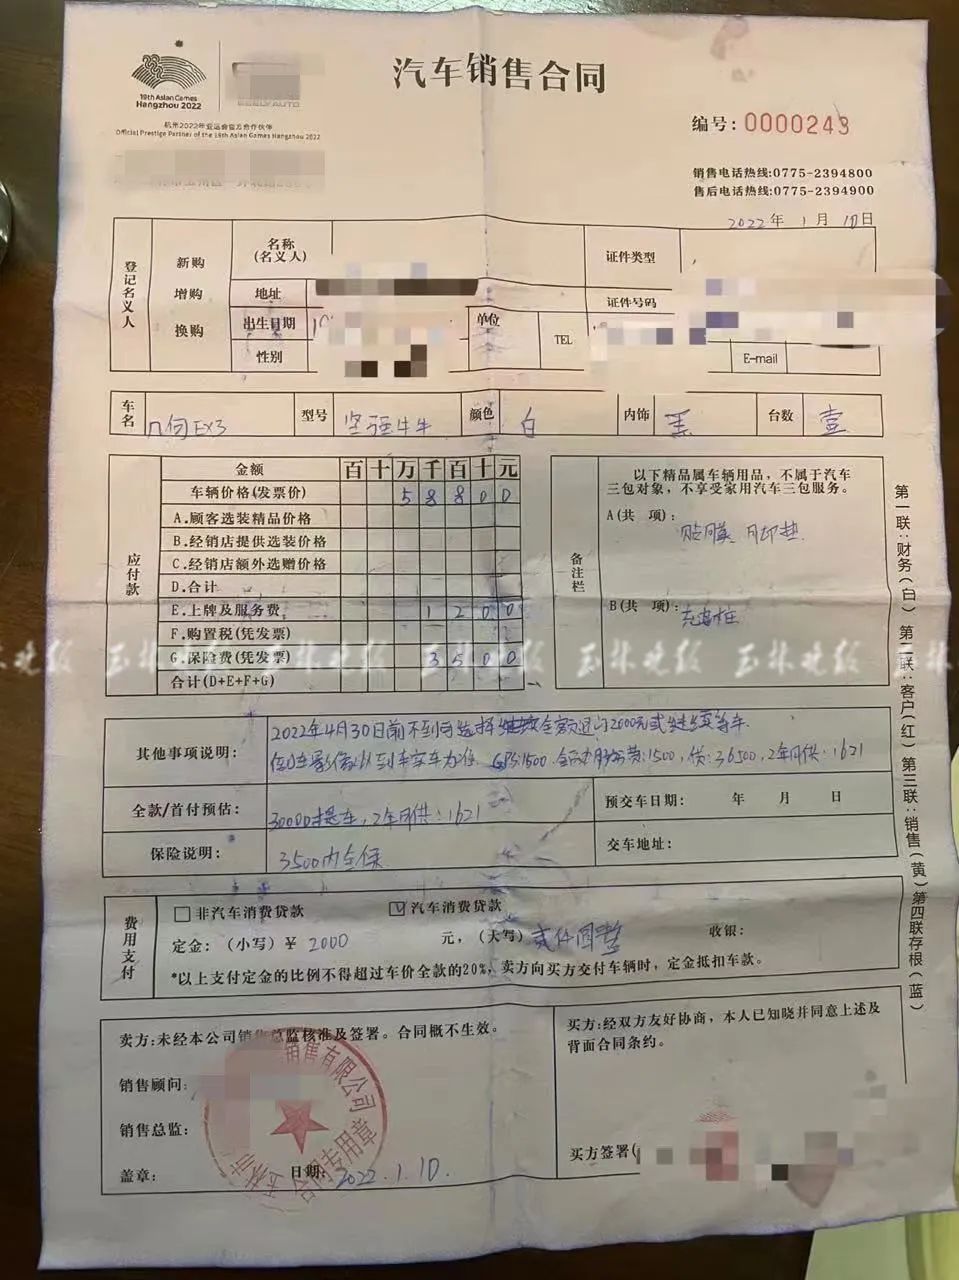 19th Asian Games
Hangzhou 2022
GEELY AUTO
杭州2022年亚运会官方合作伙伴
Official Prestige Partner of the 19th Asian Games Hangzhou 2022
汽车销售合同
编号:0000243
销售电话热线:0775-2394800
售后电话热线:0775-2394900
2022年 1月 10日
登记名义人
新购
增购
换购
名称
(名义人)
证件类型
地址
证件号码
出生日期
单位
TEL
性别
E-mail
车名 几何EX3 型号 坚强牛牛 颜色 白 内饰 黑 台数 壹
应付款
金额 百 十 万 千 百 十 元
车辆价格(发票价) 5 8 8 0 0
A.顾客选装精品价格
B.经销店提供选装价格
C.经销店额外选赠价格
D.合计
E.上牌及服务费 1 2 0 0
F.购置税(凭发票)
G.保险费(凭发票) 3 5 0 0
合计(D+E+F+G)
备注栏
以下精品属车辆用品，不属于汽车
三包对象，不享受家用汽车三包服务。
A(共 项): 贴膜、脚垫
B(共 项): 充电桩
玉林晚报 玉林晚报 玉林晚报 玉林晚报
其他事项说明:
2022年4月30日前不到可选择 全额退订2000元或继续等车
倒车影像以到车实车为准. GPS:1500. 服务费:1500, 贷:36500, 2年月供:1621
全款/首付预估: 30000提车, 2年月供:1621
预交车日期: 年 月 日
保险说明: 3500内全保
交车地址:
费用支付
非汽车消费贷款 ☑汽车消费贷款
定金:(小写)¥ 2000 元，(大写) 贰仟圆整 收银:
*以上支付定金的比例不得超过车价全款的20%，卖方向买方交付车辆时，定金抵扣车款。
卖方:未经本公司销售总监核准及签署。合同概不生效。
销售顾问:
销售总监:
盖章:
日期: 2022.1.10.
销售有限公司
合同专用章
买方:经双方友好协商，本人已知晓并同意上述及
背面合同条约。
买方签署(
第一联:财务(白) 第二联:客户(红) 第三联:销售(黄) 第四联存根(蓝)